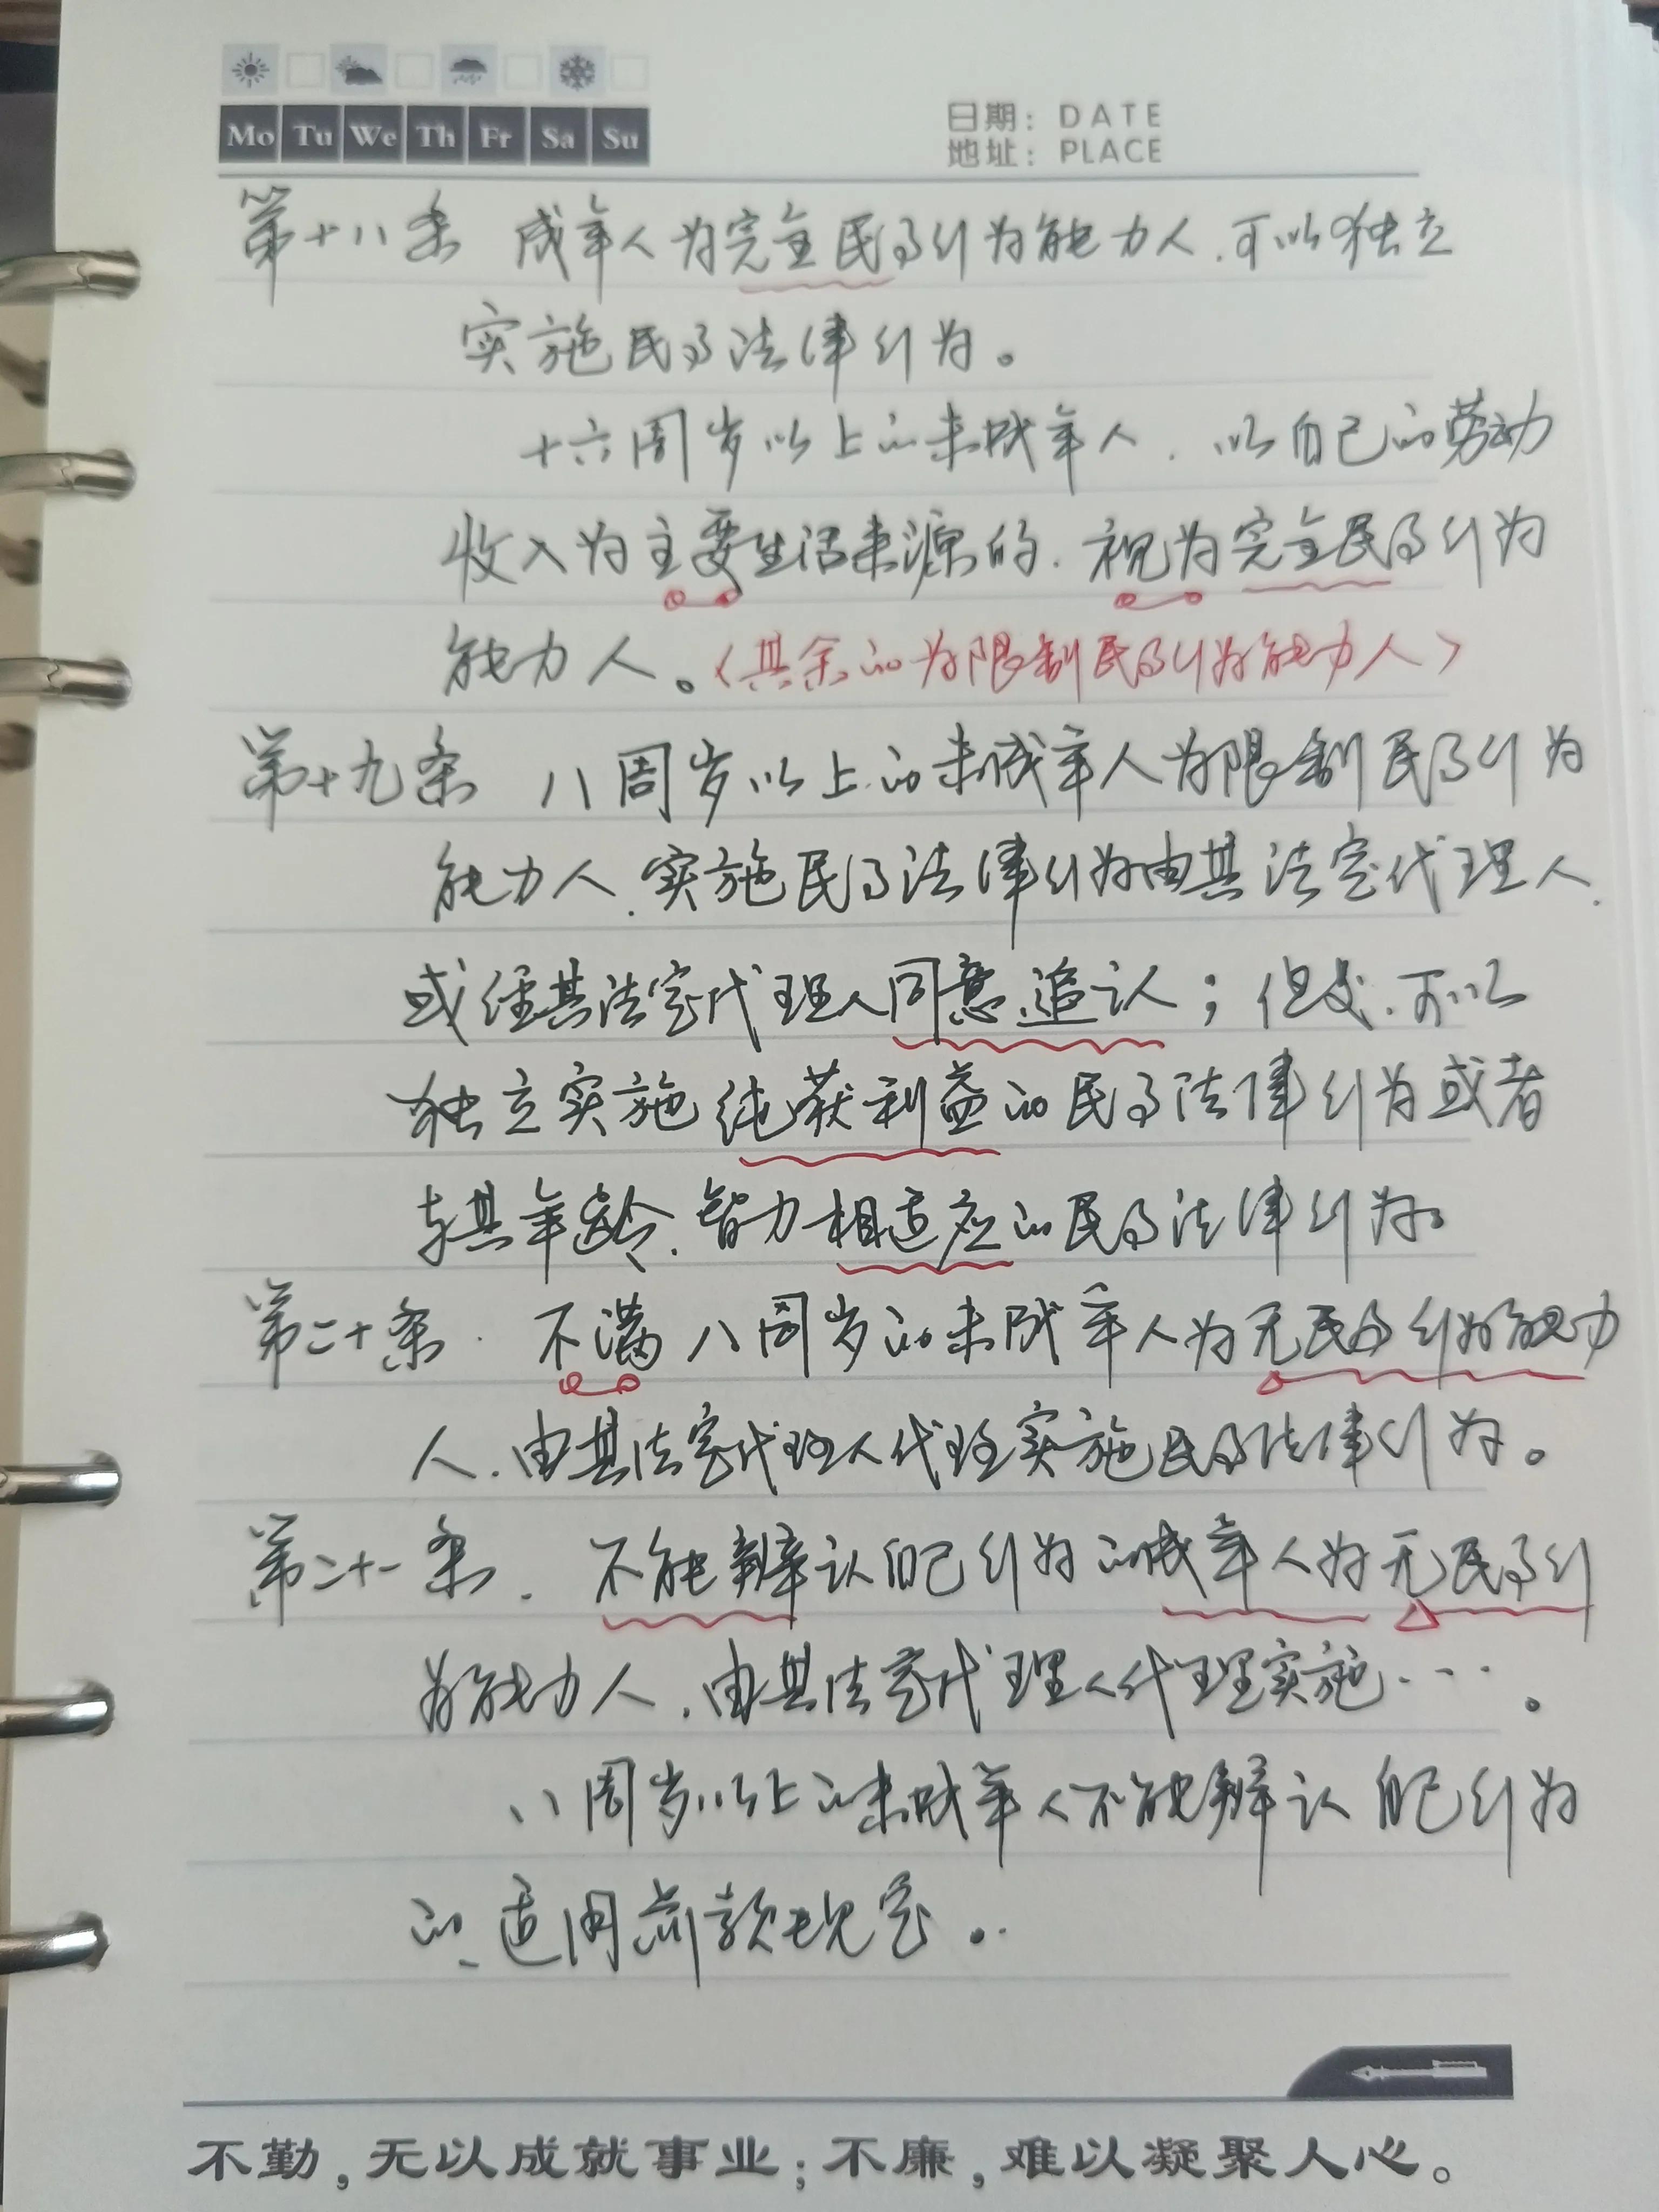 Mo Tu We Th Fr Sa Su
日期: DATE
地址: PLACE
第十八条 成年人为完全民事行为能力人,可以独立
实施民事法律行为。
十六周岁以上的未成年人,以自己的劳动
收入为主要生活来源的,视为完全民事行为
能力人。<其余的为限制民事行为能力人>
第十九条 八周岁以上的未成年人为限制民事行为
能力人,实施民事法律行为由其法定代理人,
或经其法定代理人同意、追认;但是,可以
独立实施纯获利益的民事法律行为或者
与其年龄、智力相适应的民事法律行为。
第二十条 不满八周岁的未成年人为无民事行为能力
人,由其法定代理人代理实施民事法律行为。
第二十一条 不能辨认自己行为的成年人为无民事行
为能力人,由其法定代理人代理实施……。
八周岁以上的未成年人不能辨认自己行为
的,适用前款规定。
不勤,无以成就事业;不廉,难以凝聚人心。